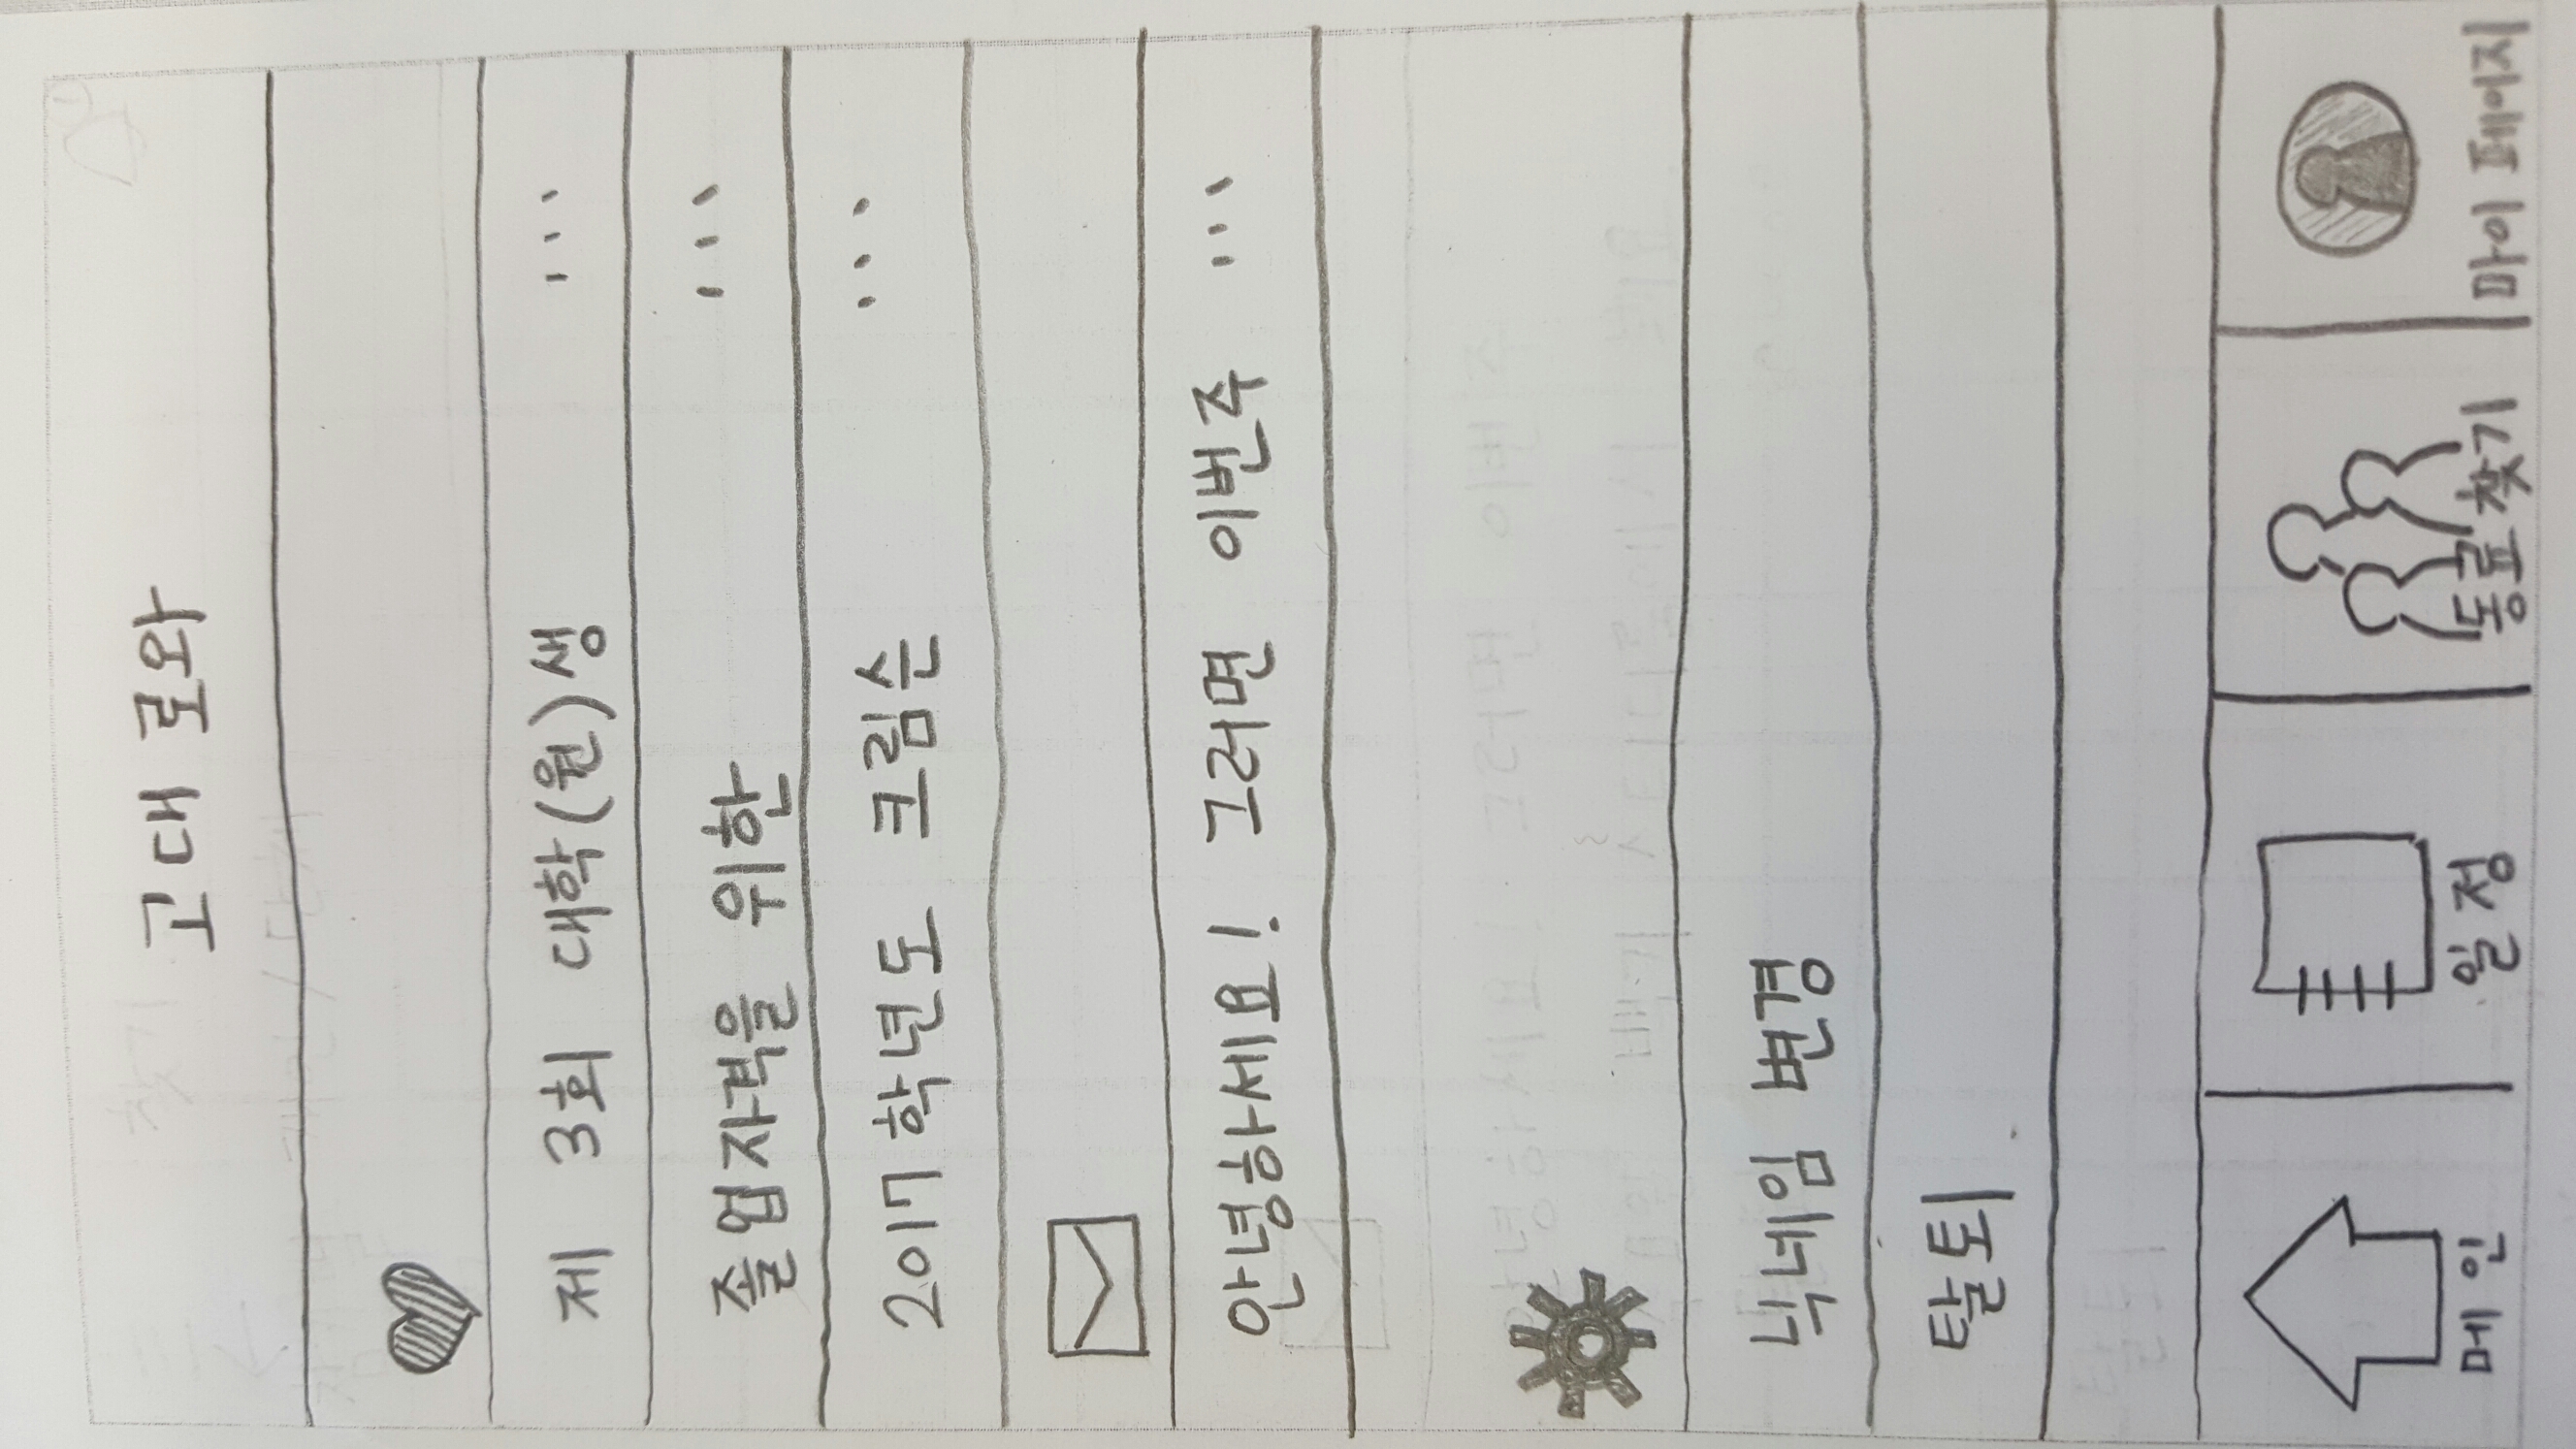 고대 로와
제 3회 대학(원)생 ...
졸업자격을 위한 ...
2017학년도 크림슨 ...
안녕하세요! 그러면 이번주 ...
닉네임 변경
탈퇴
메인 일정 동료찾기 마이 페이지